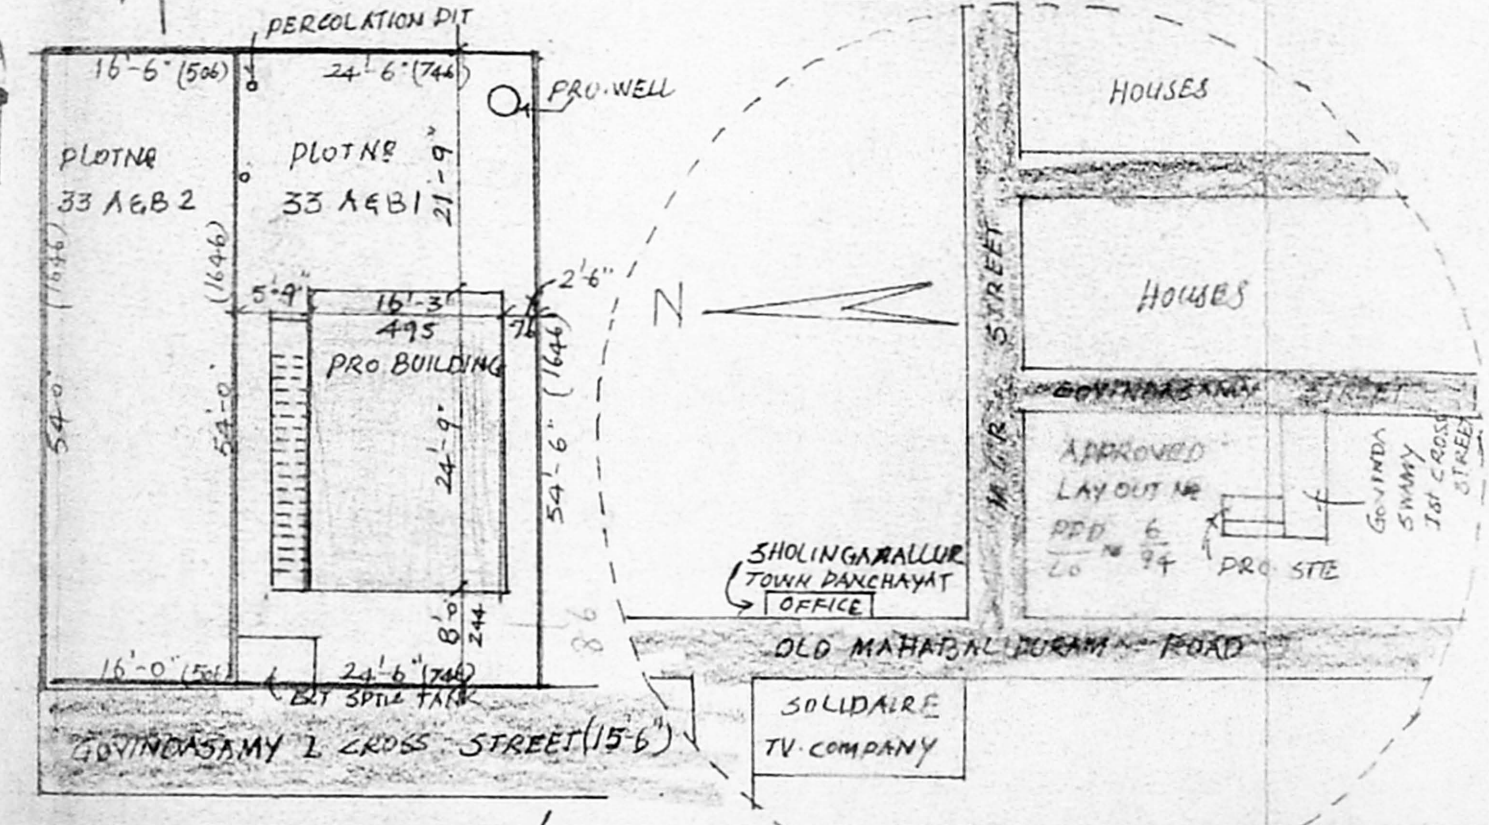 PERCOLATION PIT
16'-6" (506)
24'-6" (746)
PRO. WELL
PLOT Nº
33 A&B 2
PLOT Nº
33 A&B1
21'-9"
(1646)
(1646)
5'-9"
16'-3"
495
2'-6"
76
(1646)
PRO BUILDING
54'-0"
54'-0"
24'-9"
54'-6"
8'-0"
244
16'-0" (506)
24'-6" (746)
GOVINDASAMY I CROSS STREET (15'6")
N
HOUSES
HOUSES
M.G.R. STREET
GOVINDASAMY STREET
APPROVED
LAYOUT Nº
PPD
LO
Nº
6
94
PRO SITE
GOVINDA
SWAMY
Ist CROSS
STREET
SHOLINGANALLUR
TOWN PANCHAYAT
OFFICE
OLD MAHABALIPURAM ROAD
SOLIDAIRE
TV. COMPANY